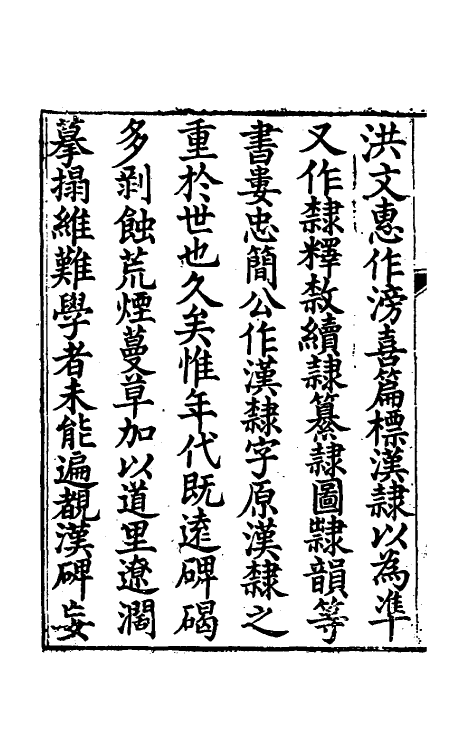 洪文惠作滂喜篇標漢隸以為準
又作隸釋敖續隸纂隸圖隸韻等
書婁忠簡公作漢隸字原漢隸之
重於世也久矣惟年代既遠碑碣
多剥蝕荒煙蔓草加以道里遼濶
摹搨維難學者未能遍覩漢碑妄